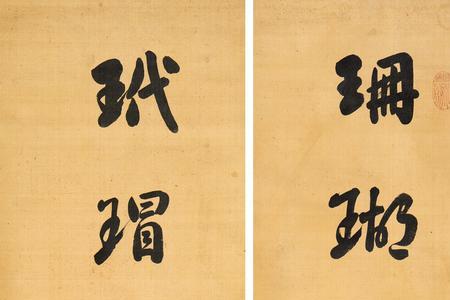 珊瑚
玳瑁